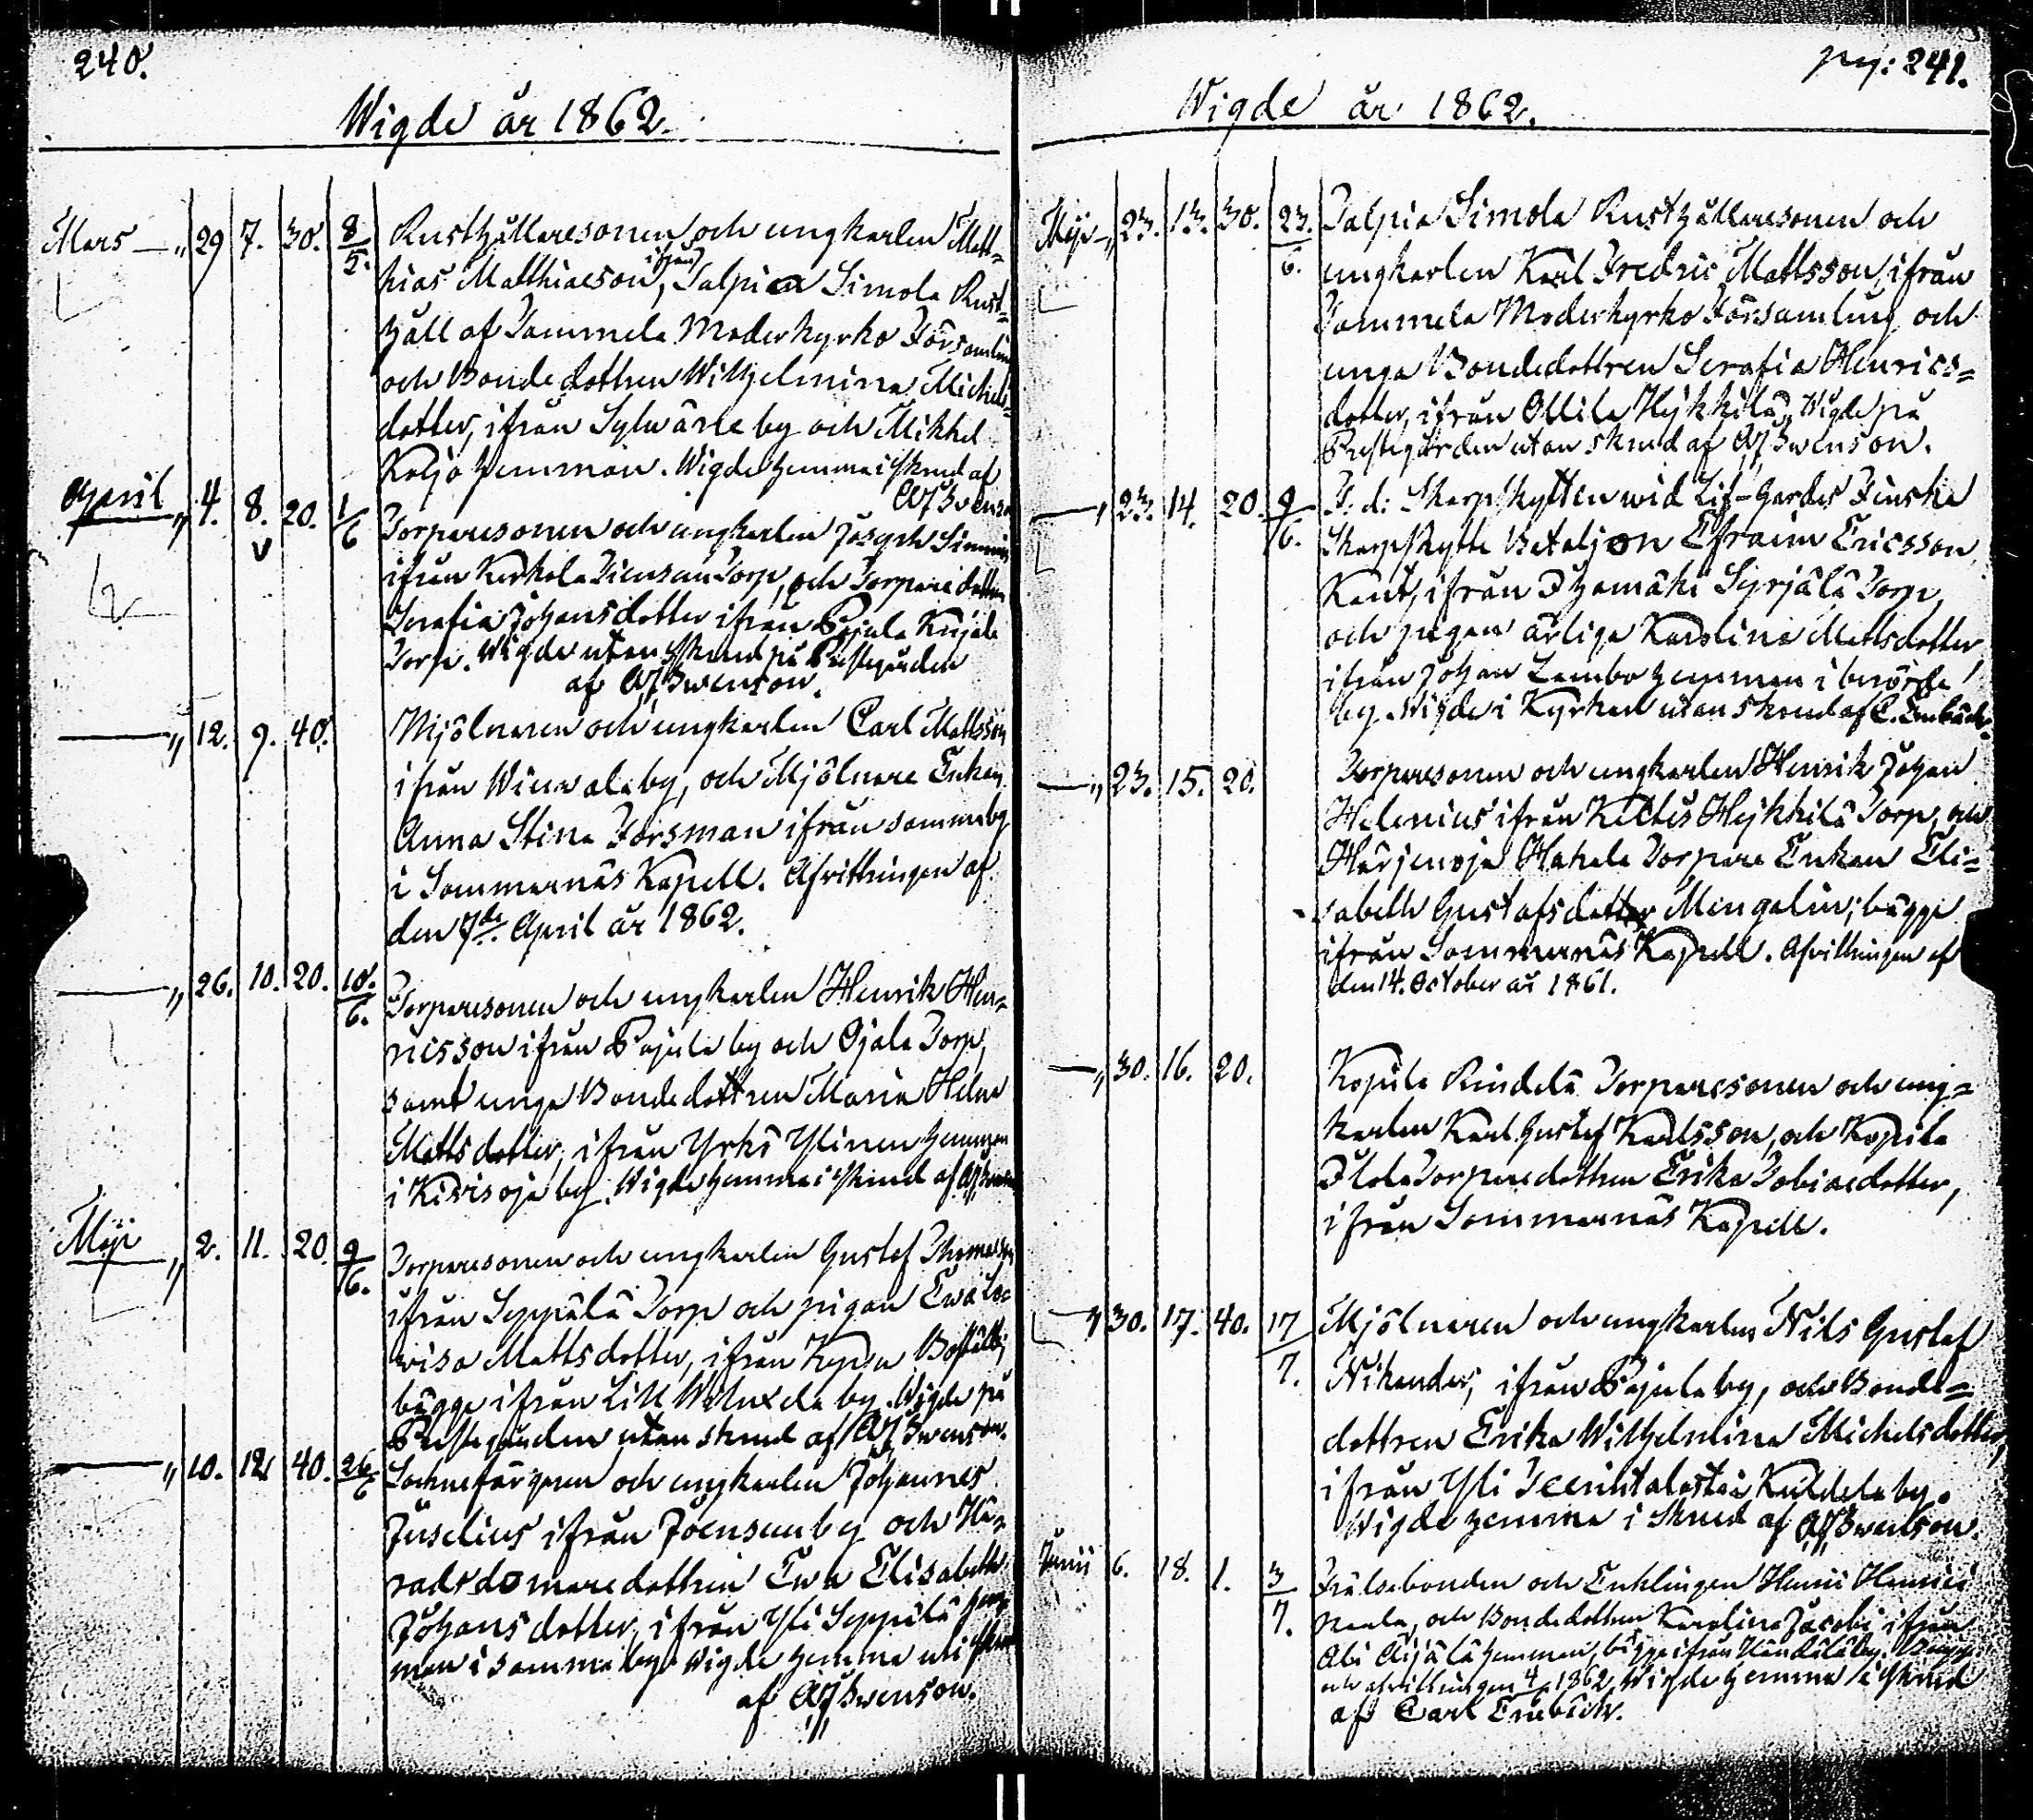 240.
Wigde år 1862.
Mars — " 29 7. 30. 8/5. Rusthållaresonen och ungkarlen Matt-
hias Matthiasson, ifrån Salpia Simola Rust-
håll af Tammela Moderkyrko Församling
och Bonde dottren Wilhelmina Michels-
dotter, ifrån Sylwäne by och Mikkel
Kojo hemman. Wigde hemma i skrud af
AF Swenson
April " 4. 8. 20. 1/6 Torparesonen och ungkarlen Joseph Simons
ifrån Torp, och Torparedottren
Serafia Johansdotter ifrån Pajula Kujala
Torp. Wigde utan skrud på Prestegården
af AF Swenson.
— " 12. 9. 40. Mjölnaren och ungkarlen Carl Mattsson
ifrån by, och Mjölnare Enkan
Anna Stina Forsman ifrån samma by
i Sommernäs Kapell. Afvittringen af
den 7de April år 1862.
— " 26. 10. 20. 10./6. Torparesonen och ungkarlen Henrik Hen-
ricsson ifrån Pajula by och Ojala Torp,
samt unga Bondedottren Maria Helena
Mattsdotter, ifrån Yrkö Ylinen hemman
i Kivisoja by. Wigde hemma i skrud af AF Swenson
Maji " 2. 11. 20. 9/6. Torparesonen och ungkarlen Gustaf Thomasson
ifrån Seppälä Torp och pigan Ewa Lo-
visa Mattsdotter, ifrån
bägge ifrån Lill by. Wigde på
Prestegården utan skrud af AF Swenson.
— " 10. 12. 40. 26/6 Socknefärgaren och ungkarlen Johannes
Juselius ifrån Joensuu by och Hä-
radsdomaredottren Ewa Elisabeth
Johansdotter, ifrån Yli Seppälä hem-
man i samma by. Wigde hemma uti skrud
af AF Swenson.
pag: 241.
Wigde år 1862.
Maji — " 23. 13. 30. 23./6. Salpia Simola Rusthållaresonen och
ungkarlen Karl Fredric Mattsson, ifrån
Tammela Moderkyrko Församling och
unga Bondedottren Serafia Henrics-
dotter, ifrån Ollila Heikkilä, Wigde på
Prestegården utan skrud af AF Swenson.
— " 23. 14. 20. 9/6. F. d. Skarpskytten wid Lif-Gardes Finska
Skarpskytte Bataljon Efraim Ericsson
ifrån Ihamäki Syrjälä Torp,
och pigan ärliga Karolina Mattsdotter
ifrån Johan Lembo hemman i berörde
by. Wigde i Kyrkan utan skrud af C. Enebäck.
— " 23. 15. 20. Torparesonen och ungkarlen Henrik Johan
Helenius ifrån Heikkilä Torp, och
Härjenoja Hakala Torpare Enkan Eli-
sabeth Gustafsdotter Mengalin, bägge
ifrån Sommernäs Kapell. Afvittringen af
den 14. October år 1861.
— " 30. 16. 20. Kopila Rindelä Torparesonen och ung-
karlen Karl Gustaf Karlsson, och Kopila
Torparedottren Erika Tobiaedotter,
ifrån Sommernäs Kapell.
— " 30. 17. 40. 17/7. Mjölnaren och ungkarlen Nils Gustaf
Nikander, ifrån Pajula by, och Bonde-
dottren Erika Wilhelmina Michelsdotter,
ifrån Yli Kuldela by.
Wigde hemma i skrud af AF Swenson.
Junii 6. 18. 1. 3/7. Frälsebonden och Enklingen Henric Henrici
och Bondedottren Karolina Jacobi ifrån
Abi Äijälä hemman, bägge ifrån by.
och afvittringen 1862. Wigde hemma i skrud
af Carl Enebäck.